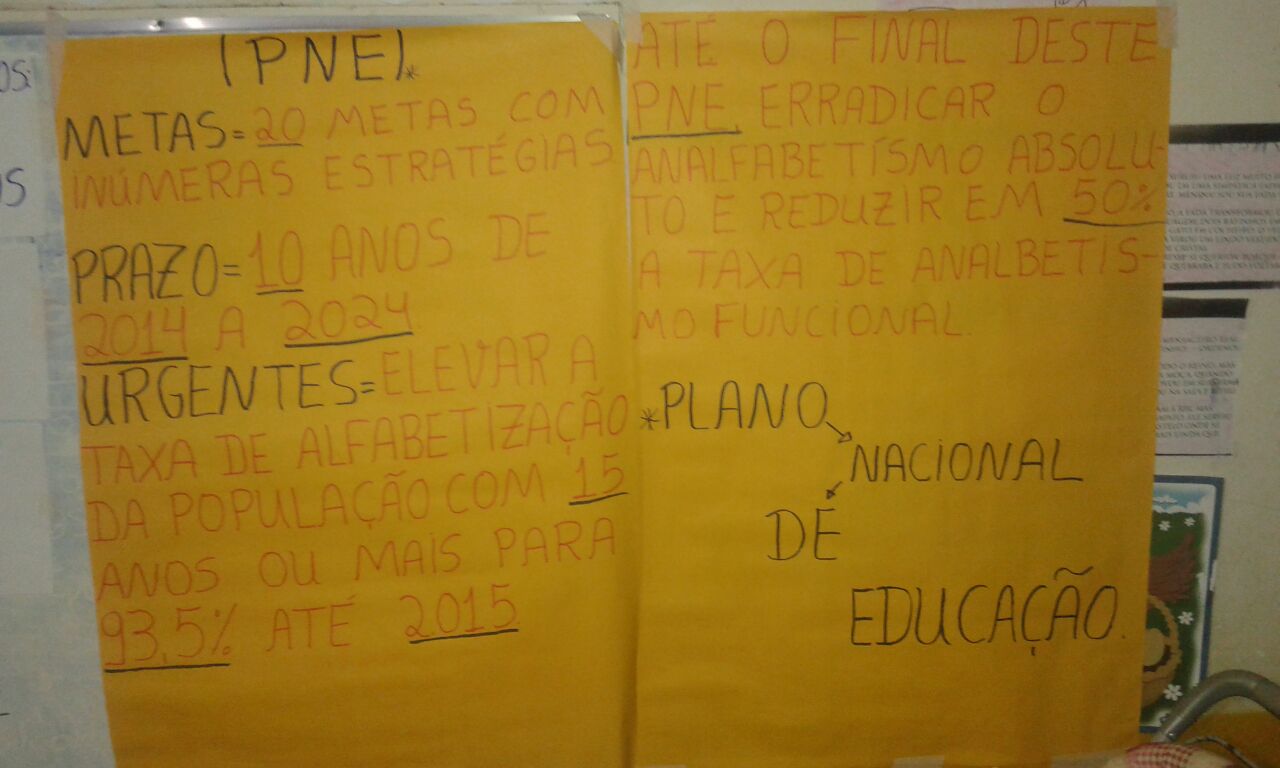 (PNE).*
METAS=20 METAS COM
INÚMERAS ESTRATÉGIAS
PRAZO=10 ANOS DE
2014 A 2024
URGENTES=ELEVAR A
TAXA DE ALFABETIZAÇÃO
DA POPULAÇÃO COM 15
ANOS OU MAIS PARA
93,5% ATÉ 2015
ATÉ O FINAL DESTE
PNE, ERRADICAR O
ANALFABETÍSMO ABSOLU-
TO E REDUZIR EM 50%
A TAXA DE ANALBETIS-
MO FUNCIONAL.
*PLANO
NACIONAL
DE
EDUCAÇÃO.